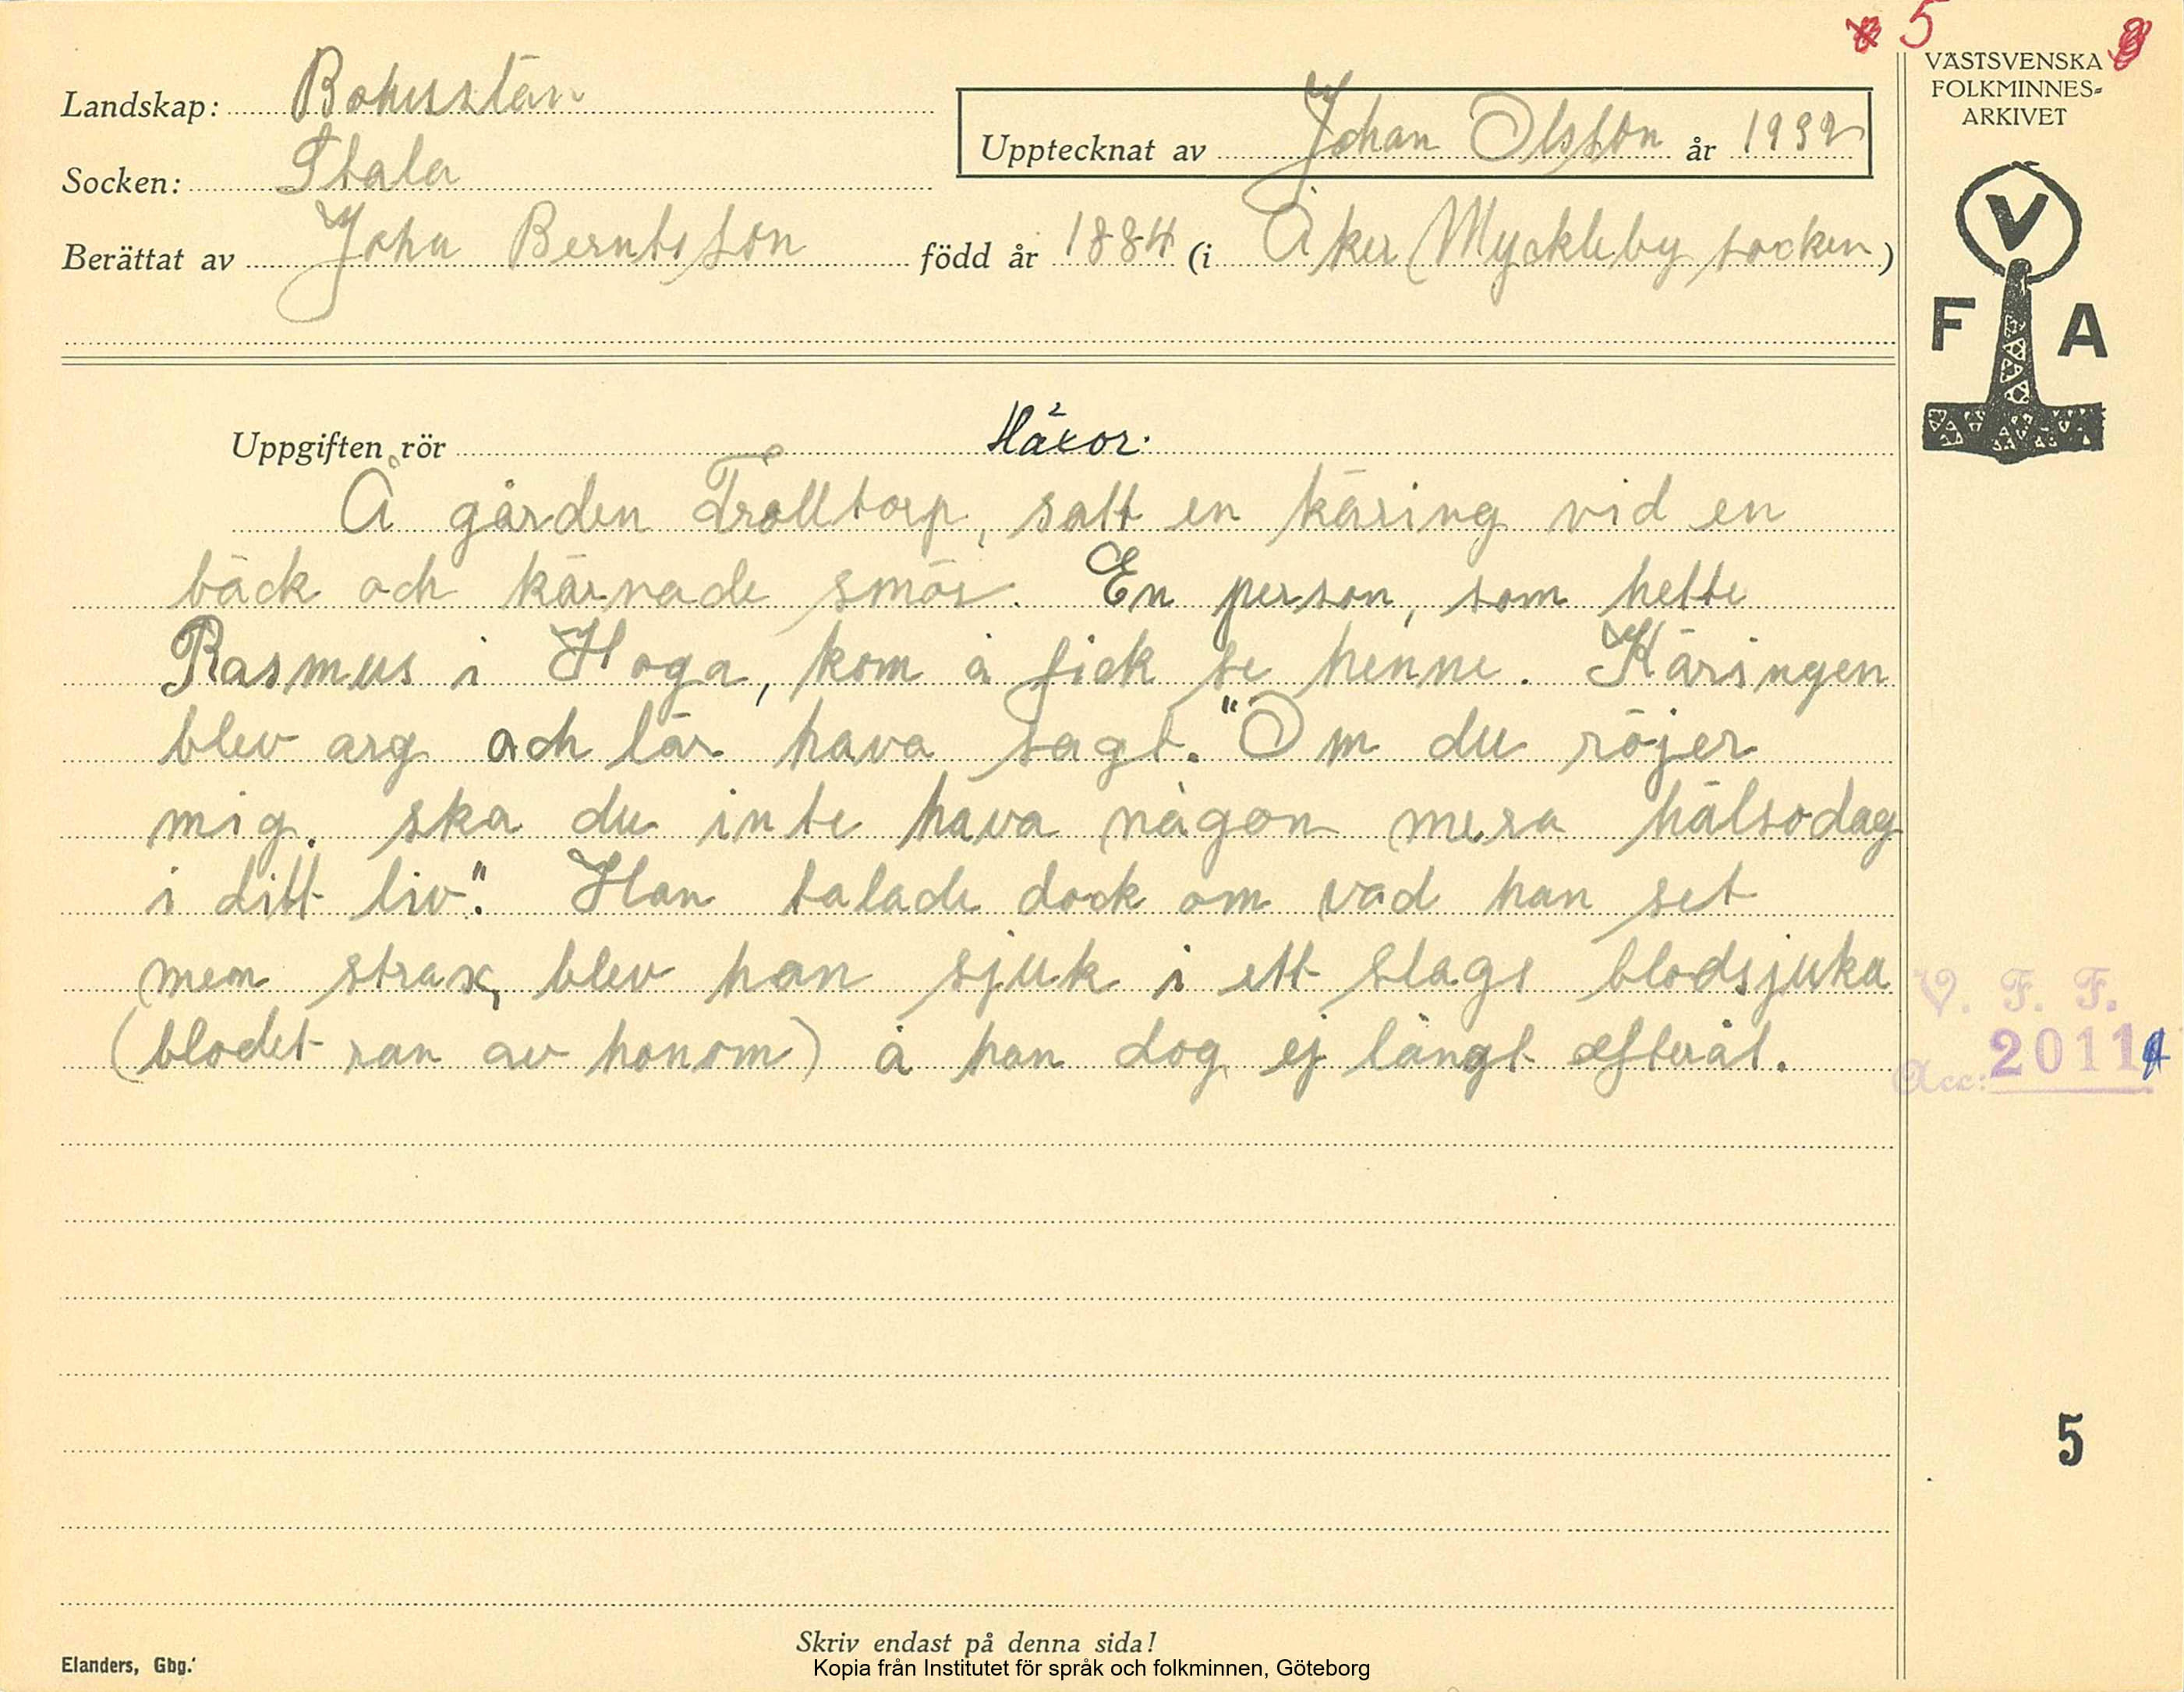 5
VÄSTSVENSKA
FOLKMINNES-
ARKIVET
V
F A
Landskap: Bohuslän
Upptecknat av Johan Olsson år 1932
Socken: Stala
Berättat av John Berntsson född år 1884 (i Åker (Myckleby socken)
Uppgiften rör Häxor.
Å gården Trolltorp, satt en käring vid en
bäck och kärnade smör. En person, som hette
Rasmus i Hoga, kom å fick se henne. Käringen
blev arg och lär hava sagt. "Om du röjer
mig. ska du inte hava någon mera hälsodag
i ditt liv". Han talade dock om vad han set
men strax, blev han sjuk i ett slags blodsjuka
(blodet ran av honom) å han dog ej långt efteråt.
V. F. F.
Acc: 2011
5
Skriv endast på denna sida!
Elanders, Gbg.
Kopia från Institutet för språk och folkminnen, Göteborg